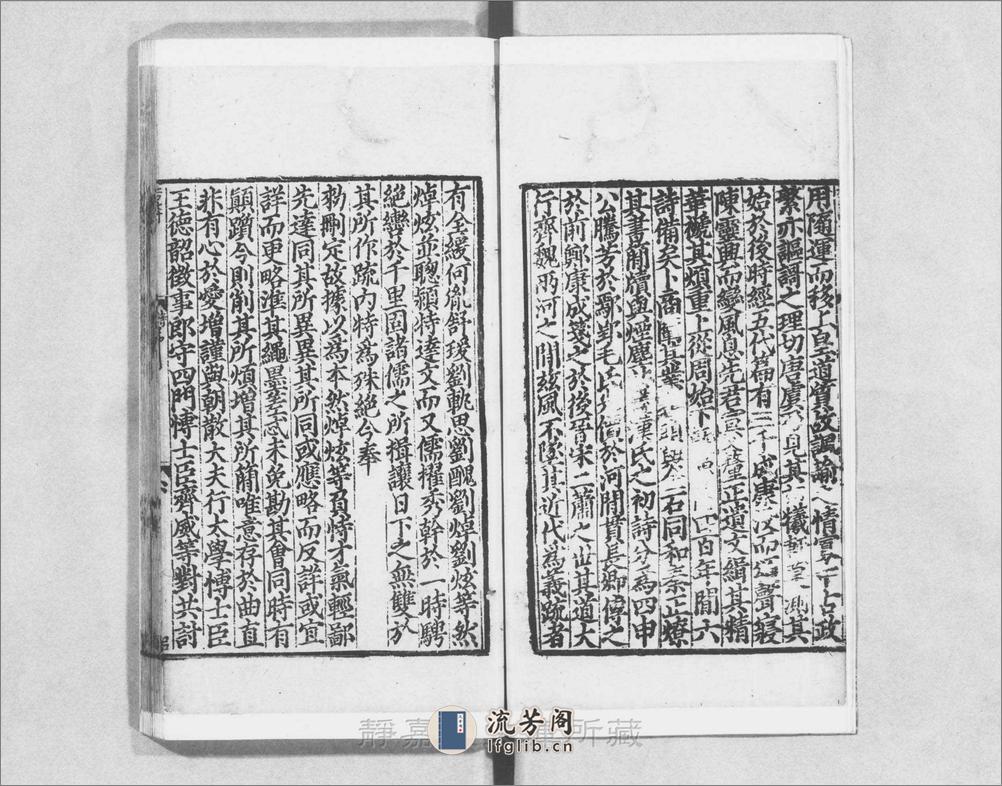 用隨運而移上皇道質故諷諭之情寡中古政
繁亦謳謌之理切唐虞乃見其初犧軒莫測其
始於後時經五代篇有三千成康沒而頌聲寢
陳靈興而變風息先君宣父釐正遺文緝其精
華褫其煩重上從周始下
四百年間六
詩備矣卜商
其業
同和秦正燎
其書簡牘與煙塵
漢氏之初詩分為四申
公騰芳於鄢郢毛氏
於河間貫長卿傳之
於前鄭康成箋之於後晉宋二蕭之世其道大
行齊魏兩河之間茲風不墜其近代為義疏者
有全緩何胤舒瑗劉軌思劉醜劉焯劉炫等然
焯炫並聰穎特達文而又儒擢秀幹於一時騁
絕轡於千里固諸儒之所揖讓日下之無雙於
其所作疏內特為殊絕今奉
勑刪定故據以為本然焯炫等負恃才氣輕鄙
先達同其所異異其所同或應略而反詳或宜
詳而更略準其繩墨差忒未免勘其會同時有
顛躓今則削其所煩增其所簡唯意存於曲直
非有心於愛增謹與朝散大夫行太學博士臣
王德韶徵事郎守四門博士臣齊威等對共討
靜嘉
所藏
流芳阁
lfglib.cn